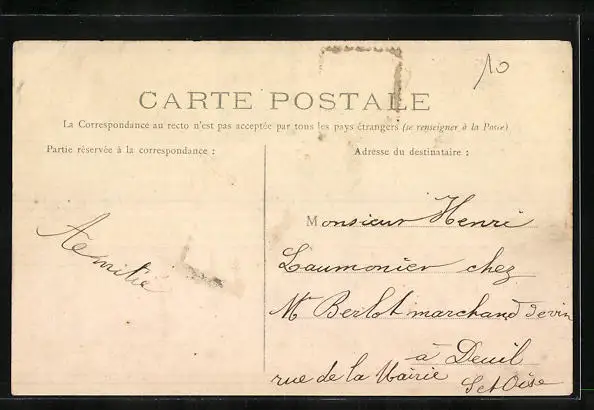 10
CARTE POSTALE
La Correspondance au recto n'est pas acceptée par tous les pays étrangers (se renseigner à la Poste)
Partie réservée à la correspondance :
Adresse du destinataire :
Aemitié
Monsieur Henri
Laumonier chez
Mr Berlot marchand de vin
à Deuil
rue de la Mairie
S et Oise